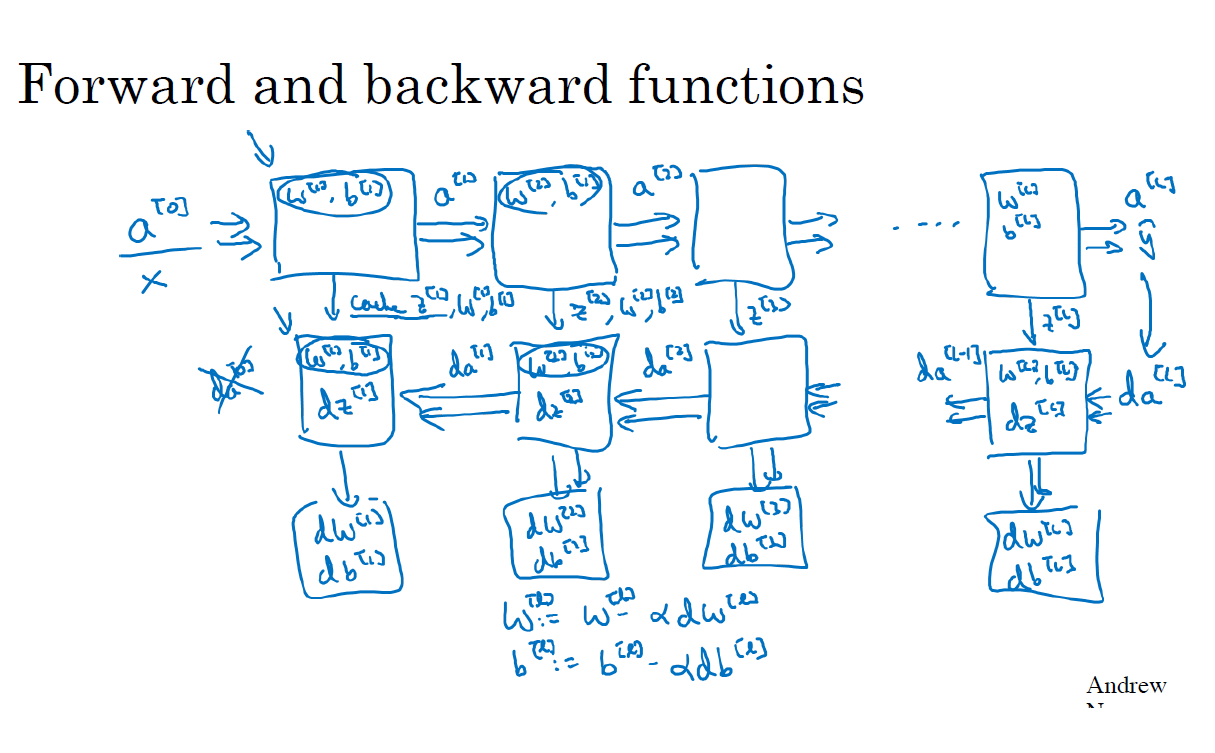 Forward and backward functions
a^[0] w^[1], b^[1] a^[1] w^[2], b^[2] a^[2] ... w^[L] a^[L]
x b^[L] ŷ
cache z^[1], w^[1], b^[1] z^[2], w^[2], b^[2] z^[3] z^[L]
da^[0] w^[1], b^[1] da^[1] w^[2], b^[2] da^[2] da^[L-1] w^[L], b^[L] da^[L]
dz^[1] dz^[2] dz^[L]
dw^[1] dw^[2] dw^[3] dw^[L]
db^[1] db^[2] db^[3] db^[L]
w^[l] := w^[l] - αdw^[l]
b^[l] := b^[l] - αdb^[l]
Andrew